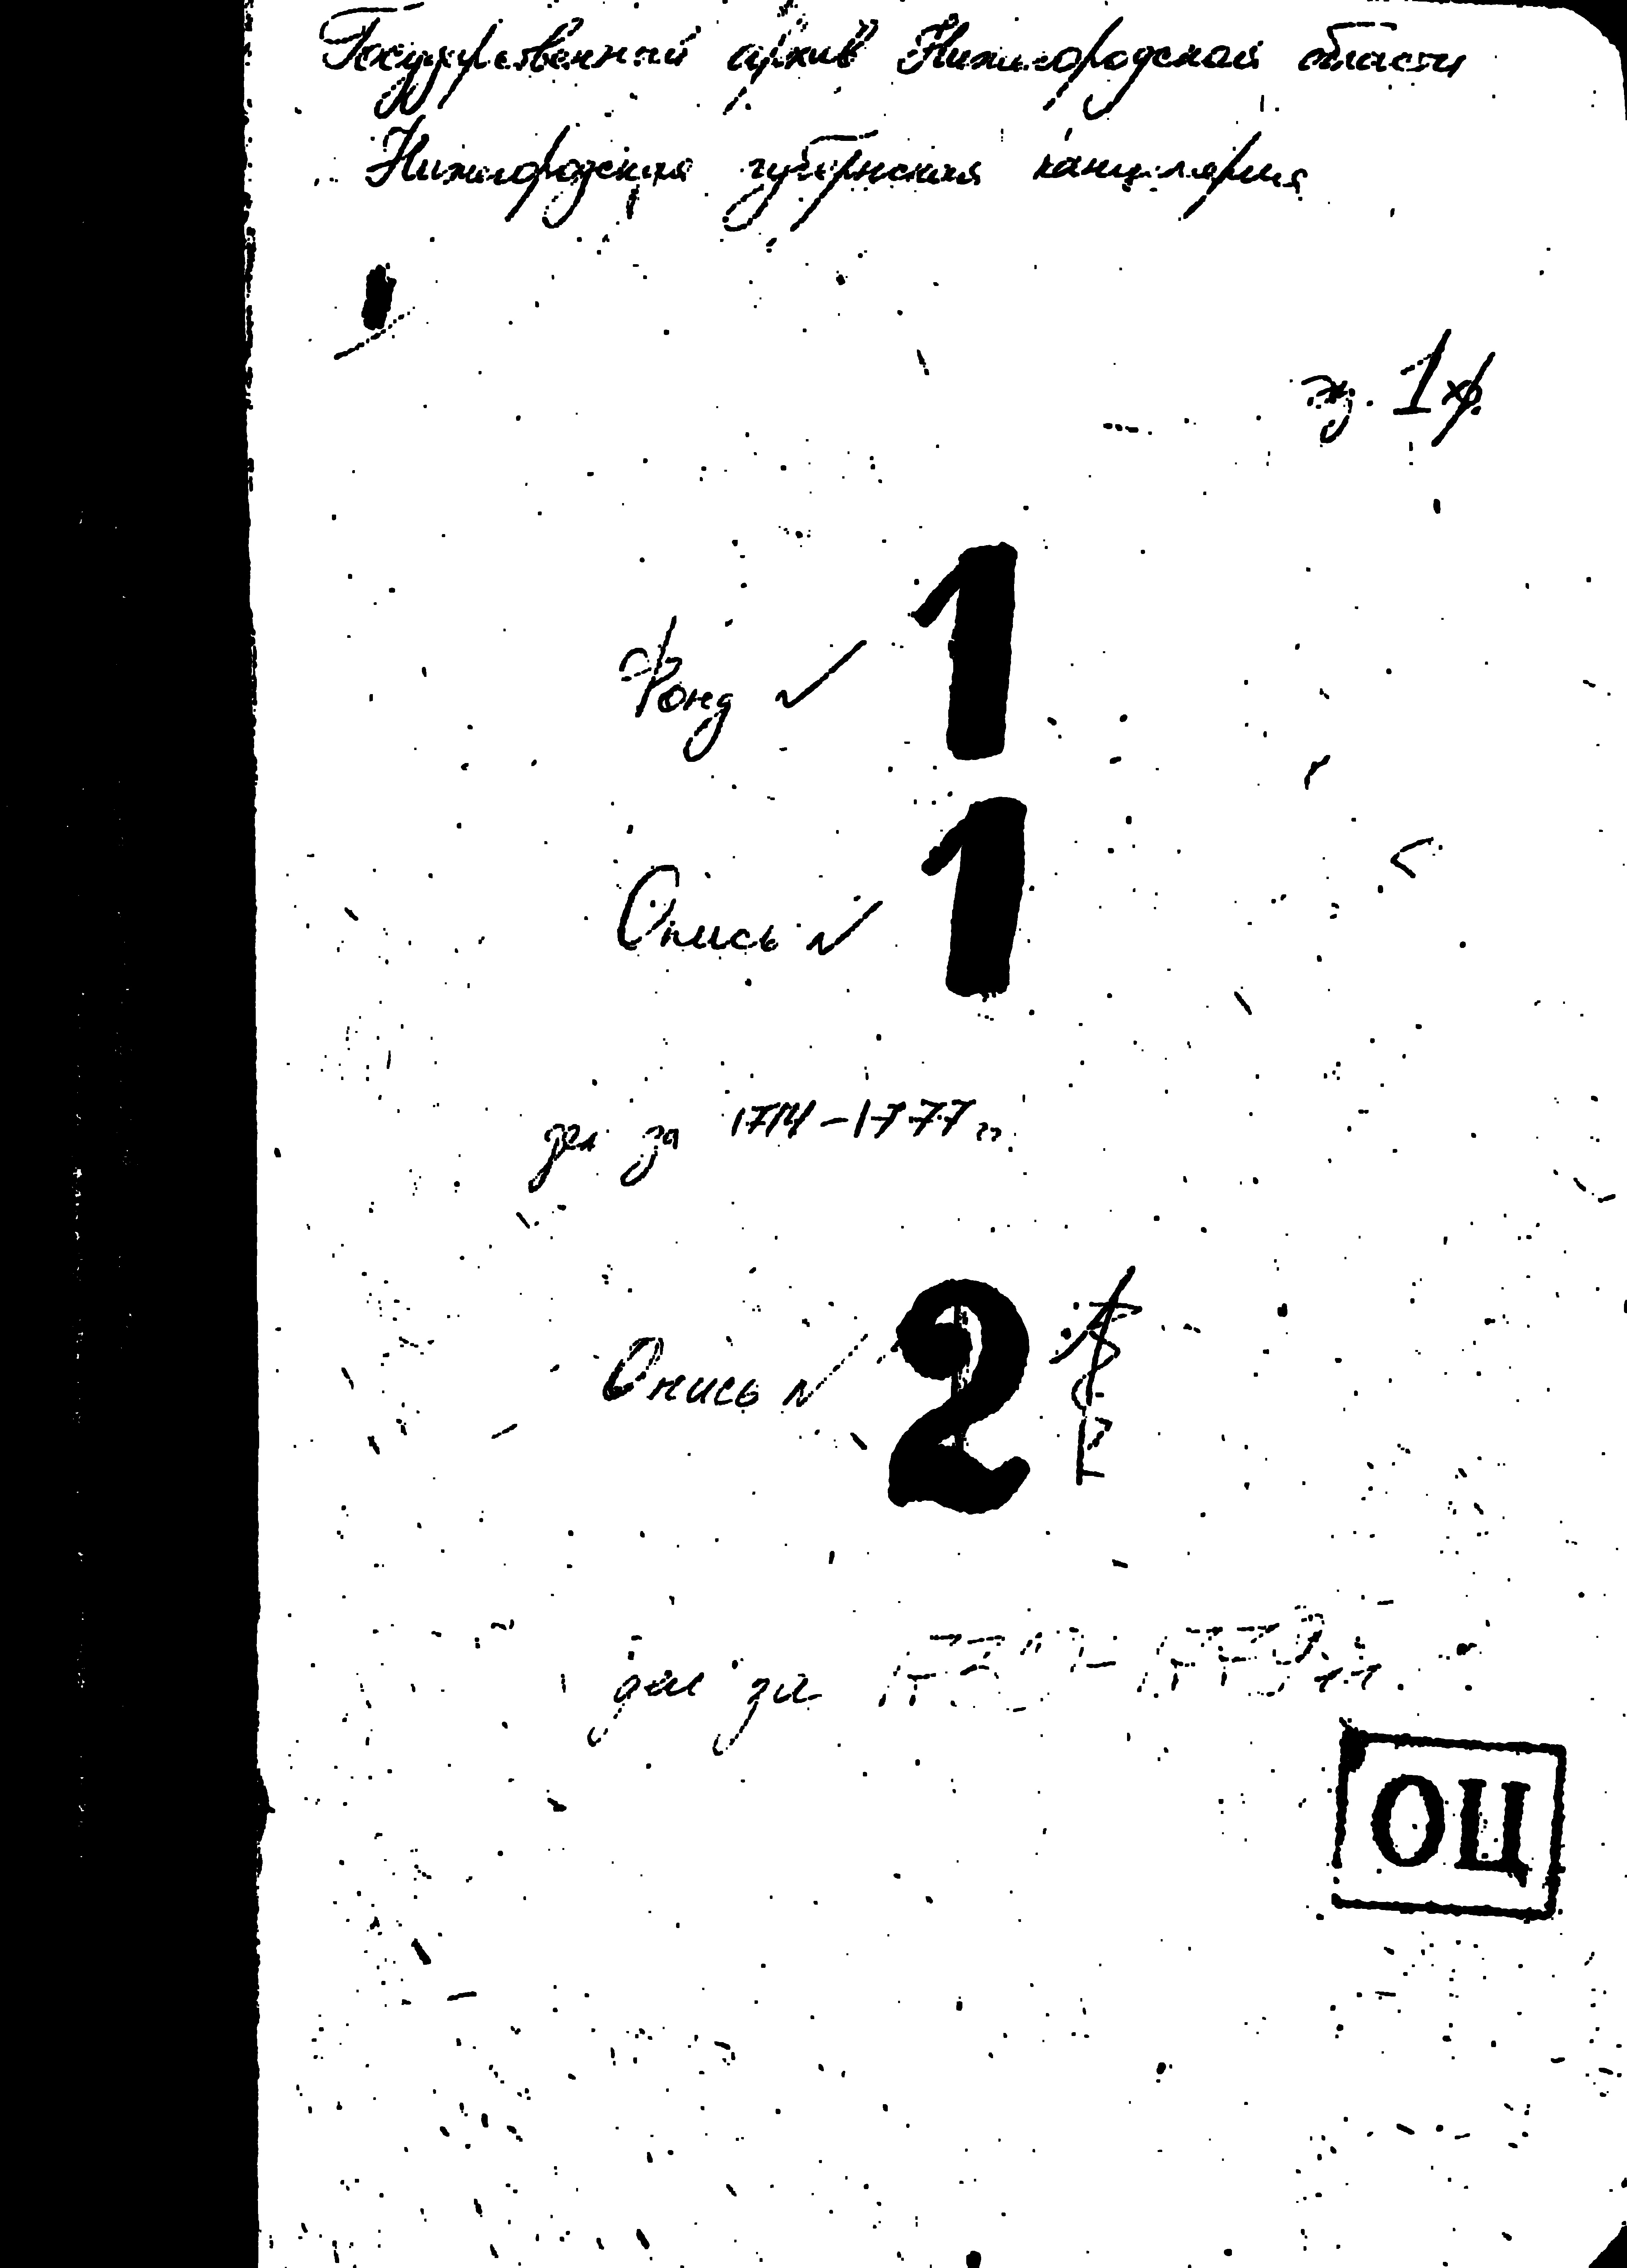 Государственный архив Нижегородской области
Нижегородская губернская канцелярия
эк. 1хр.
Фонд № 1
Опись № 1
дел за 1714-1777 гг.
Опись № 2
дел за
ОЦ